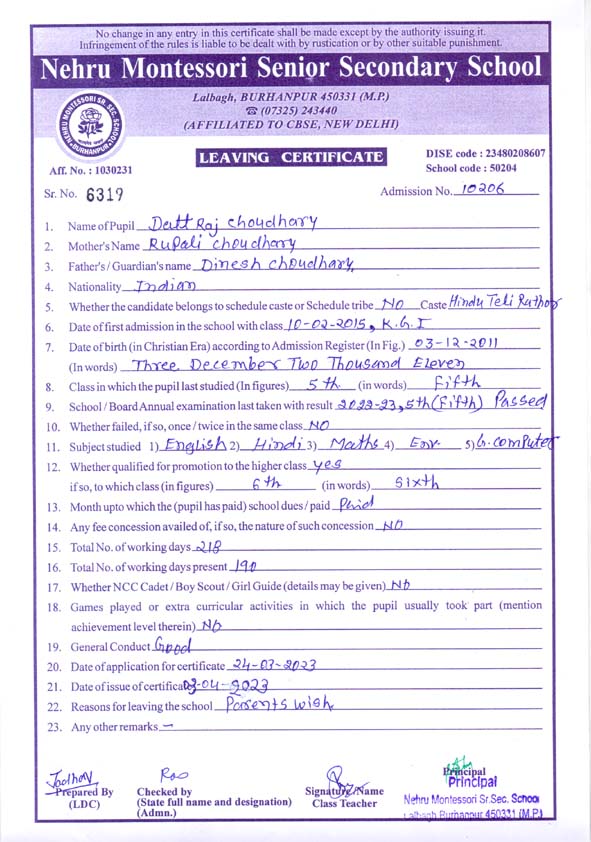 No change in any entry in this certificate shall be made except by the authority issuing it.
Infringement of the rules is liable to be dealt with by rustication or by other suitable punishment.
Nehru Montessori Senior Secondary School
Lalbagh, BURHANPUR 450331 (M.P.)
☎ (07325) 243440
(AFFILIATED TO CBSE, NEW DELHI)
NEHRU MONTESSORI SR. SEC. SCHOOL
BURHANPUR
LEAVING CERTIFICATE
DISE code : 23480208607
School code : 50204
Aff. No. : 1030231
Sr. No. 6319
Admission No. 10206
1. Name of Pupil Datt Raj Choudhary
2. Mother's Name Rupali Choudhary
3. Father's / Guardian's name Dinesh Choudhary
4. Nationality Indian
5. Whether the candidate belongs to schedule caste or Schedule tribe No Caste Hindu Teli Rathor
6. Date of first admission in the school with class 10-02-2015, K.G. I
7. Date of birth (in Christian Era) according to Admission Register (In Fig.) 03-12-2011
(In words) Three December Two Thousand Eleven
8. Class in which the pupil last studied (In figures) 5th (in words) Fifth
9. School / Board Annual examination last taken with result 2022-23, 5th (Fifth) Passed
10. Whether failed, if so, once / twice in the same class NO
11. Subject studied 1) English 2) Hindi 3) Maths 4) Env. 5) G. Computer
12. Whether qualified for promotion to the higher class yes
if so, to which class (in figures) 6th (in words) Sixth
13. Month upto which the (pupil has paid) school dues / paid Paid
14. Any fee concession availed of, if so, the nature of such concession NO
15. Total No. of working days 218
16. Total No. of working days present 190
17. Whether NCC Cadet / Boy Scout / Girl Guide (details may be given) No
18. Games played or extra curricular activities in which the pupil usually took part (mention
achievement level therein) No
19. General Conduct Good
20. Date of application for certificate 24-03-2023
21. Date of issue of certificate 03-04-2023
22. Reasons for leaving the school Parents wish
23. Any other remarks —
Prepared By
(LDC)
Rao
Checked by
(State full name and designation)
(Admn.)
Signature/Name
Class Teacher
Principal
Principal
Nehru Montessori Sr.Sec. School
Lalbagh Burhanpur 450331 (M.P.)